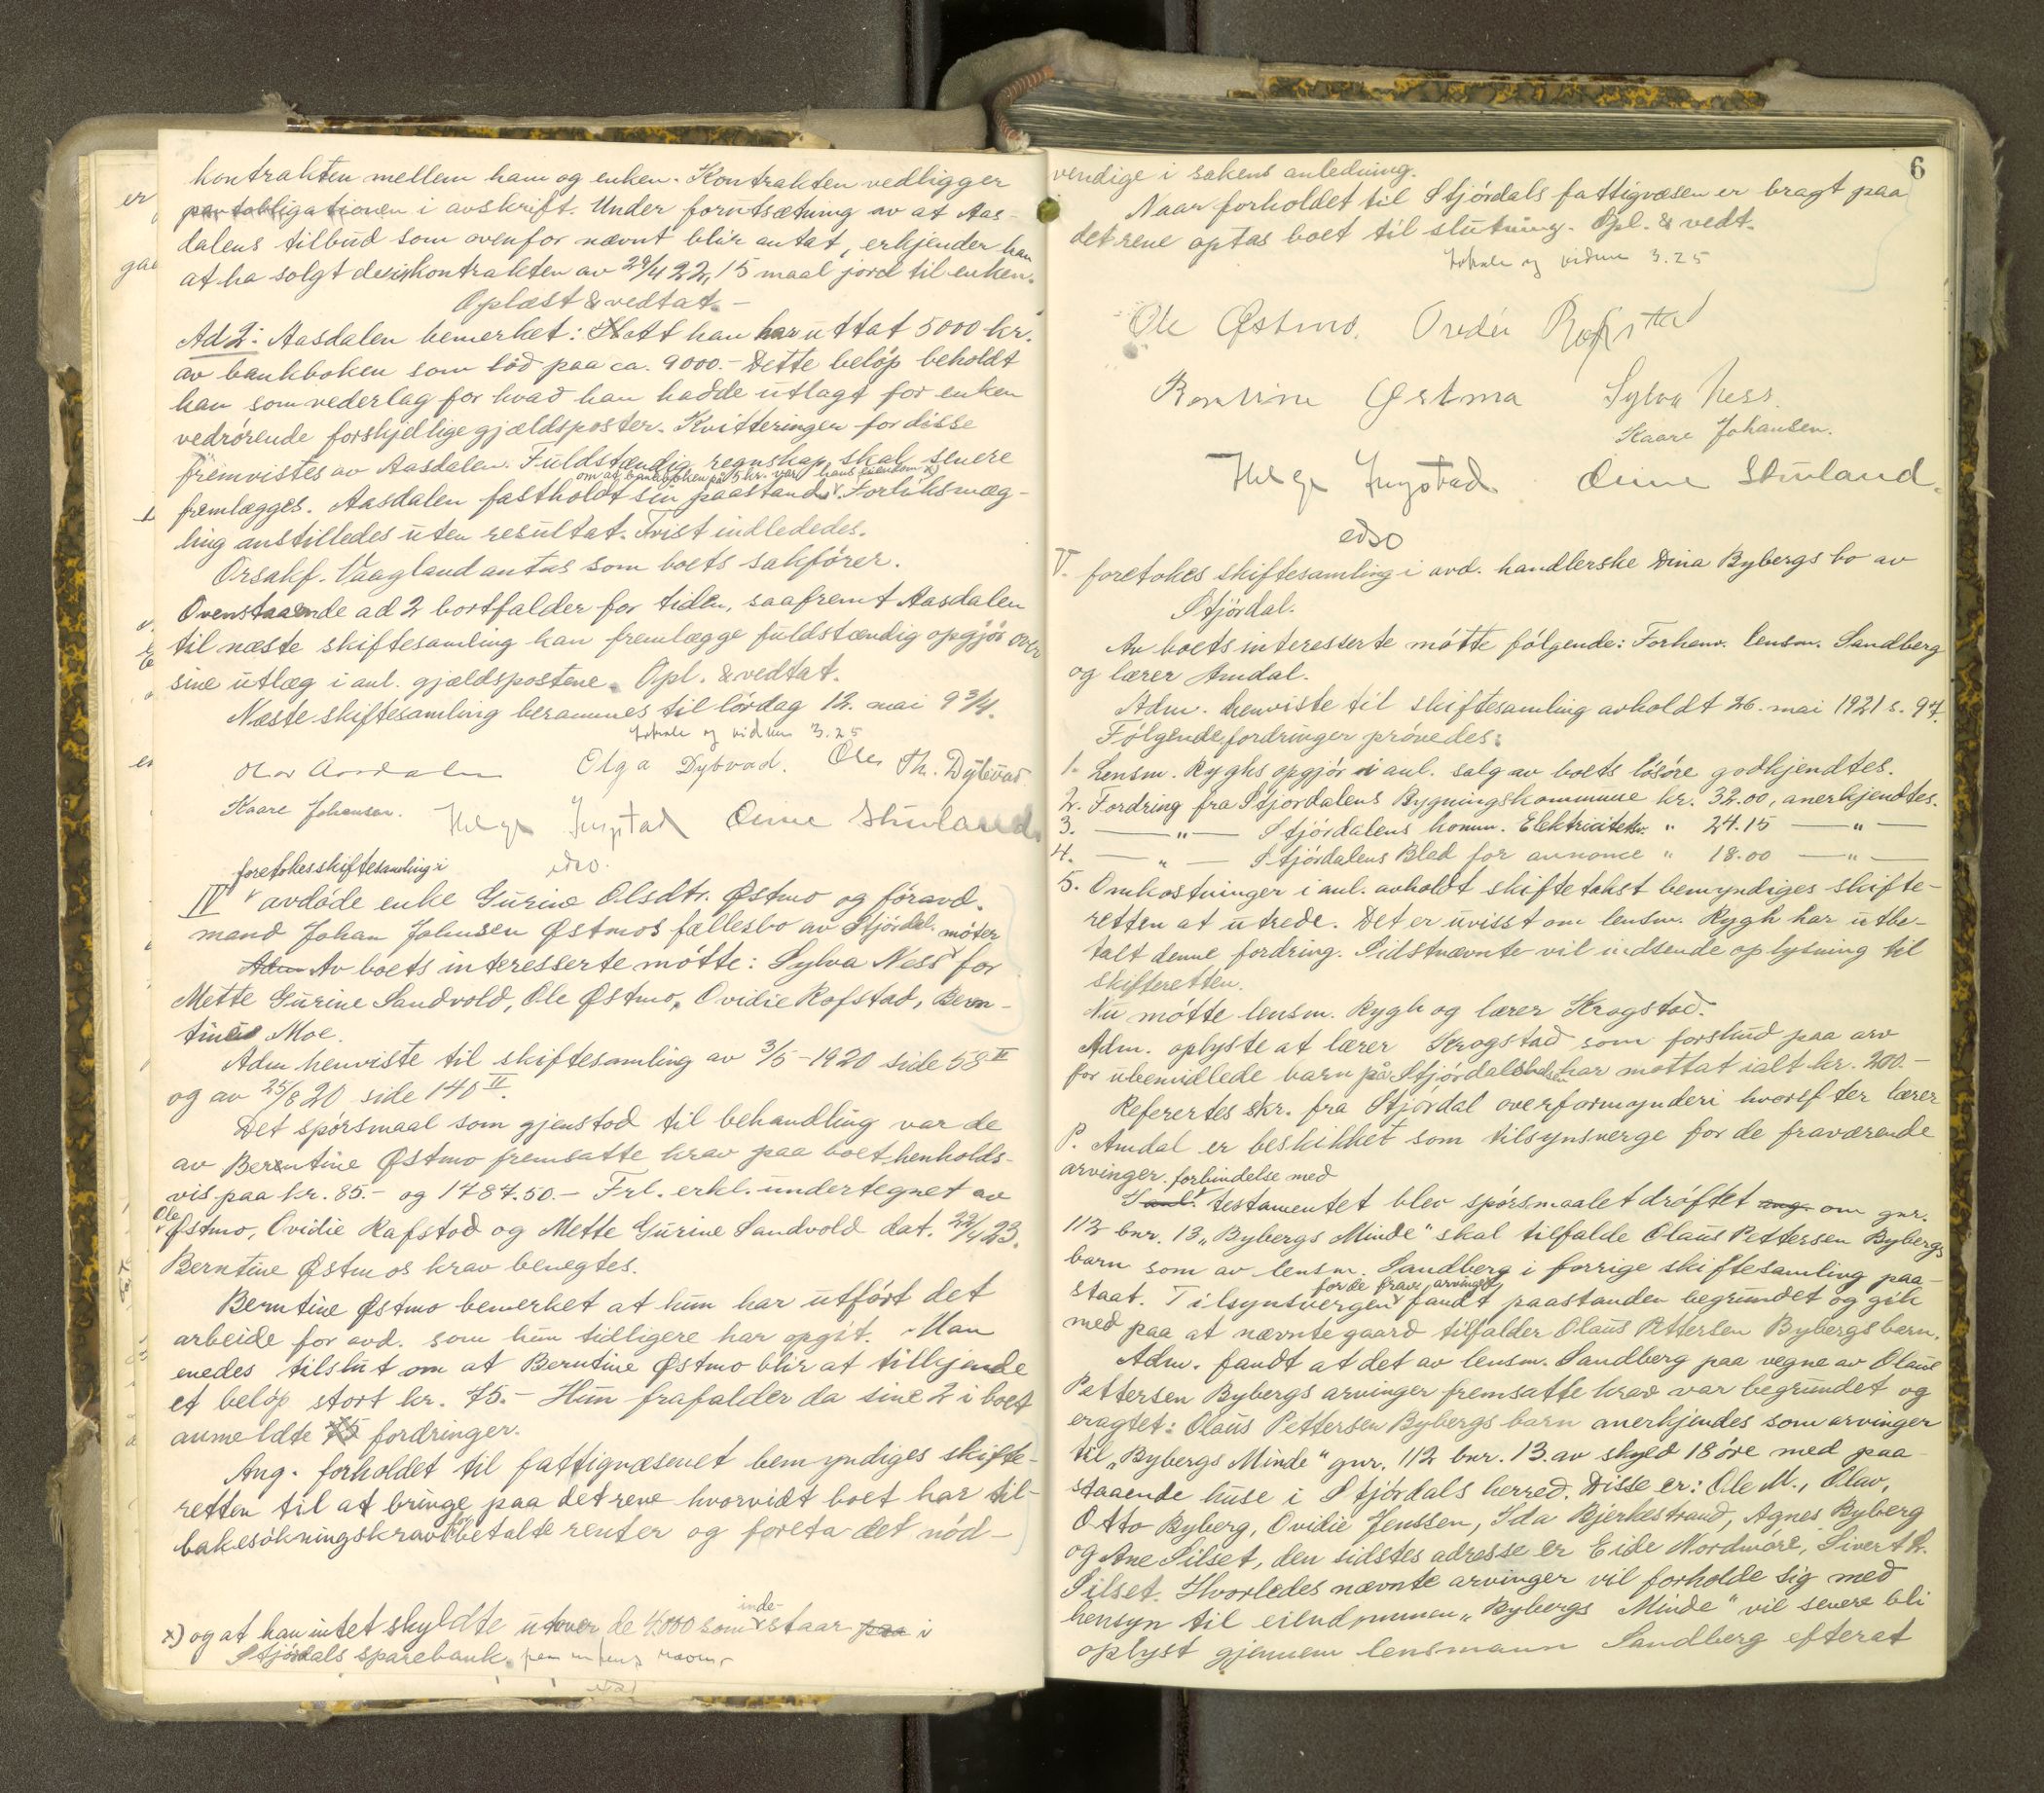 kontrakten mellem ham og enken. Kontrakten vedligger
pantobligationen i avskrift. Under forutsætning av at Aas-
dalens tilbud som ovenfor nævnt blir antat, erkjender han
at ha solgt kontrakten av 29/4 22, 15 maal jord til enken.
Oplæst & vedtat. -
Ad 2: Aasdalen bemerket: At han har uttat 5000 kr.
av bankboken som löd paa ca. 9000.- Dette belöp beholdt
han som vederlag for hvad han hadde utlagt for enken
vedrörende forskjellige gjældsposter. Kvitteringer for disse
fremvistes av Aasdalen. Fuldstændig regnskap skal senere
om at bankboken på 5 kr. var hans eiendom x)
fremlægges. Aasdalen fastholdt sin paastand v. Forliksmæg-
ling anstilledes uten resultat. Tvist indlededes.
Orsakf. Vaagland antas som boets sakförer.
Ovenstaaende ad 2 bortfalder for tiden, saafremt Aasdalen
til næste skiftesamling kan fremlægge fuldstændig opgjör over
sine utlæg i anl. gjældspostene. Opl. & vedtat.
Næste skiftesamling berammes til lördag 12. mai 9 3/4.
Lokale og vidner 3.25
Olav Aasdalen Olga Dybvad. Ole Th. Dybvad
Kaare Johansen. Helge Ingstad Anne Stuland
edso.
foretokes skiftesamling i
IV v avdöde enke Gurine Olsdtr. Østmo og föravd.
mand Johan Johnsen Østmos fællesbo av Stjördal.
møter
Adm Av boets interesserte mötte: Sylva Ness v for
Mette Gurine Sandvold, Ole Østmo, Ovidie Rofstad, Bern-
tine Moe.
Adm henviste til skiftesamling av 3/5 - 1920 side 58 II
og av 25/8 20 side 140 II.
Det spörsmaal som gjenstod til behandling var de
av Berntine Østmo fremsatte krav paa boet henholds-
vis paa kr. 85.- og 1487.50.- Frl. erkl. undertegnet av
Ole
v Østmo, Ovidie Rafstad og Mette Gurine Sandvold dat. 22/4 23.
Berntine Østmos krav benegtes.
Berntine Østmo bemerket at hun har utfört det
arbeide for avd. som hun tidligere har opgit. Man
enedes tilslut om at Berntine Østmo blir at tilkjende
et belöp stort kr. 75.- Hun frafalder da sine 2 i boet
anmeldte 75 fordringer.
Ang. forholdet til fattigvæsenet bemyndiges skifte-
retten til at bringe paa det rene hvorvidt boet har til-
bakesökningskrav for betalte renter og foreta det nöd-
x) og at han intet skyldte utover de 4000 som inde- v staar paa i
Stjördals sparebank.
6
vendige i sakens anledning.
Naar forholdet til Stjördals fattigvæsen er bragt paa
det rene optas boet til slutning. Opl. & vedt.
Lokale og vidner 3.25
Ole Østmo. Ovidie Rofstad
Berntine Østmo Sylva Ness.
Kaare Johansen.
Helge Ingstad Anne Stuland.
edso
V. foretokes skiftesamling i avd. handlerske Dina Bybergs bo av
Stjördal.
Av boets interesserte mötte fölgende: Forhenv. lensm. Sandberg
og lærer Amdal.
Adm. henviste til skiftesamling avholdt 26. mai 1921 s. 97.
Fölgende fordringer prövedes:
1. Lensm. Ryghs opgjör i anl. salg av boets lösöre godkjendtes.
2. Fordring fra Stjordalens Bygningskommune kr. 32.00, anerkjendtes.
3. — " — Stjördalens komm. Elektricitetsv. " 24.15 — " —
4. — " — Stjördalens Blad for annonce " 18.00 — " —
5. Omkostninger i anl. avholdt skiftetakst bemyndiges skifte-
retten at utrede. Det er uvisst om lensm. Rygh har utbe-
talt denne fordring. Sidstnævnte vil indsende oplysning til
skifteretten.
Nu mötte lensm. Rygh og lærer Krogstad.
Adm. oplyste at lærer Krogstad som forskud paa arv
for ubemidlede barn på Stjördalshalsen har mottat ialt kr. 200.-
Referertes skr. fra Stjördal overformynderi hvorefter lærer
P. Amdal er beskikket som tilsynsverge for de fraværende
arvinger.
forbindelse med
I anl. v testamentet blev spörsmaalet dröftet ang. om gnr.
112 bnr. 13 „Bybergs Minde" skal tilfalde Olaus Pettersen Bybergs
barn som av lensm. Sandberg i forrige skiftesamling paa-
for de fravr. arvinger
staat. Tilsynsvergen v fandt paastanden begrundet og gik
med paa at nævnte gaard tilfalder Olaus Pettersen Bybergs barn.
Adm. fandt at det av lensm. Sandberg paa vegne av Olaus
Pettersen Bybergs arvinger fremsatte krav var begrundet og
eragtet: Olaus Pettersen Bybergs barn anerkjendes som arvinger
til „Bybergs Minde" gnr. 112 bnr. 13. av skyld 18 öre med paa-
staaende huse i Stjördals herred. Disse er: Ole M., Olav,
Otto Byberg, Ovidie Jenssen, Ida Bjerkestrand, Agnes Byberg
og Ane Silset, den sidstes adresse er Eide Nordmöre, Sivert P.
Silset. Hvorledes nævnte arvinger vil forholde sig med
hensyn til eiendommen „Bybergs Minde" vil senere bli
oplyst gjennem lensmann Sandberg efterat